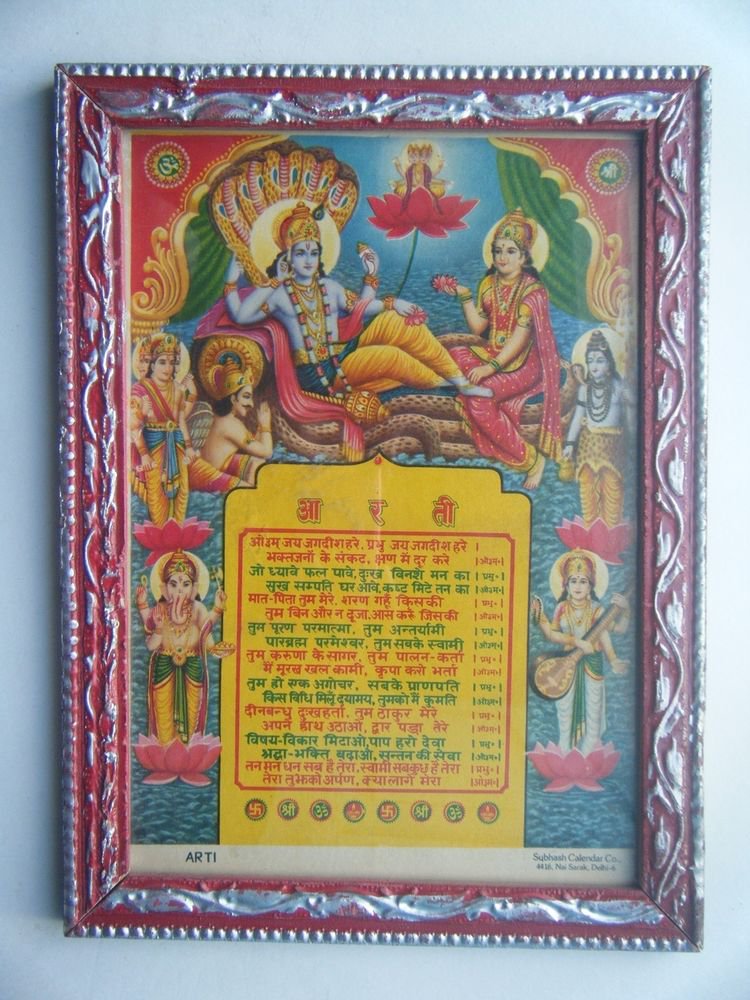 ॐ
श्री
आ र ती
ओ३म् जय जगदीश हरे, प्रभु जय जगदीश हरे ।
भक्तजनों के संकट, क्षण में दूर करे ।ओ३म॰।
जो ध्यावे फल पावे, दुःख बिनशे मन का ।प्रभु॰।
सुख सम्पति घर आवे, कष्ट मिटे तन का ।ओ३म॰।
मात-पिता तुम मेरे, शरण गहूँ किसकी ।प्रभु॰।
तुम बिन और न दूजा, आस करूँ जिसकी ।ओ३म॰।
तुम पूरण परमात्मा, तुम अन्तर्यामी ।प्रभु॰।
पारब्रह्म परमेश्वर, तुम सबके स्वामी ।ओ३म॰।
तुम करुणा के सागर, तुम पालन-कर्ता ।प्रभु॰।
मैं मूरख खल कामी, कृपा करो भर्ता ।ओ३म॰।
तुम हो एक अगोचर, सबके प्राणपति ।प्रभु॰।
किस बिधि मिलूँ दयामय, तुमको मैं कुमति ।ओ३म॰।
दीनबन्धु दुःखहर्ता, तुम ठाकुर मेरे ।प्रभु॰।
अपने हाथ उठाओ, द्वार पड़ा तेरे ।ओ३म॰।
विषय-विकार मिटाओ, पाप हरो देवा ।प्रभु॰।
श्रद्धा-भक्ति बढ़ाओ, सन्तन की सेवा ।ओ३म॰।
तन मन धन सब है तेरा, स्वामी सब कुछ है तेरा ।प्रभु॰।
तेरा तुझको अर्पण, क्या लागे मेरा ।ओ३म॰।
卐 श्री ॐ 卐 श्री ॐ
ARTI
Subhash Calendar Co.,
4416, Nai Sarak, Delhi-6